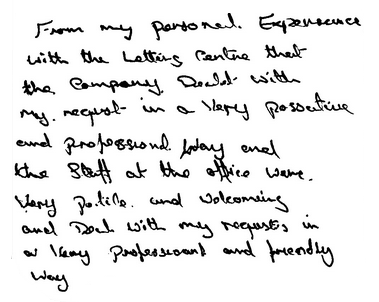 From my personal Experience
with the Letting Centre that
the Company Dealt with
my request in a Very possative
and professional way and
the Staff at the office were
Very polite and welcoming
and Deal with my requests in
a Very Professional and friendly
way